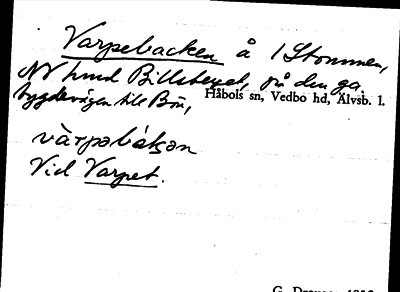 Varpebacken å 1 Stommen,
NV hmd Billsberget, på den ga
bygdevägen till Bön,
Håbols sn, Vedbo hd, Älvsb. l.
vàrpəbákən
Vid Varpet.